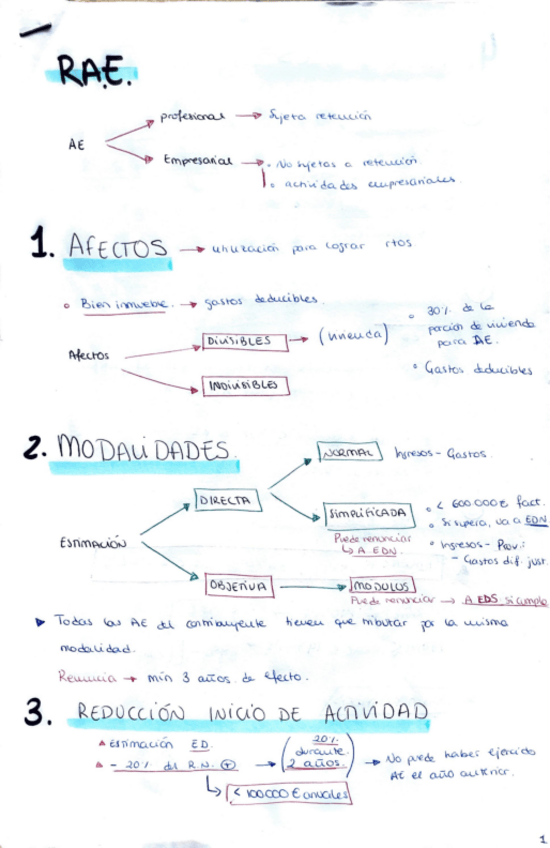 R.A.E.
AE
profesional → Sujeta retención
Empresarial → • No sujetas a retención.
• actividades empresariales.
1. AFECTOS → utilización para lograr rtos
• Bien inmueble. → gastos deducibles.
Afectos
DIVISIBLES → (vivienda)
• 30% de la
porción de vivienda
para AE.
• Gastos deducibles
INDIVISIBLES
2. MODALIDADES.
ESTIMACIÓN
DIRECTA
NORMAL Ingresos - Gastos.
SIMPLIFICADA
Puede renunciar
↳ A EDN.
• < 600.000€ fact.
• Si supera, va a EDN.
• Ingresos - Prov.:
- Gastos dif. just.
OBJETIVA → MÓDULOS
Puede renunciar → A EDS si cumple
▶ Todas las AE del contribuyente tienen que tributar por la misma
modalidad.
Renuncia → mín 3 años de efecto.
3. REDUCCIÓN INICIO DE ACTIVIDAD
▲ ESTIMACIÓN ED.
▲ - 20% del R.N. ⊕ → (20% durante 2 años.) → No puede haber ejercido
AE el año anterior.
↳ < 100000 € anuales
1